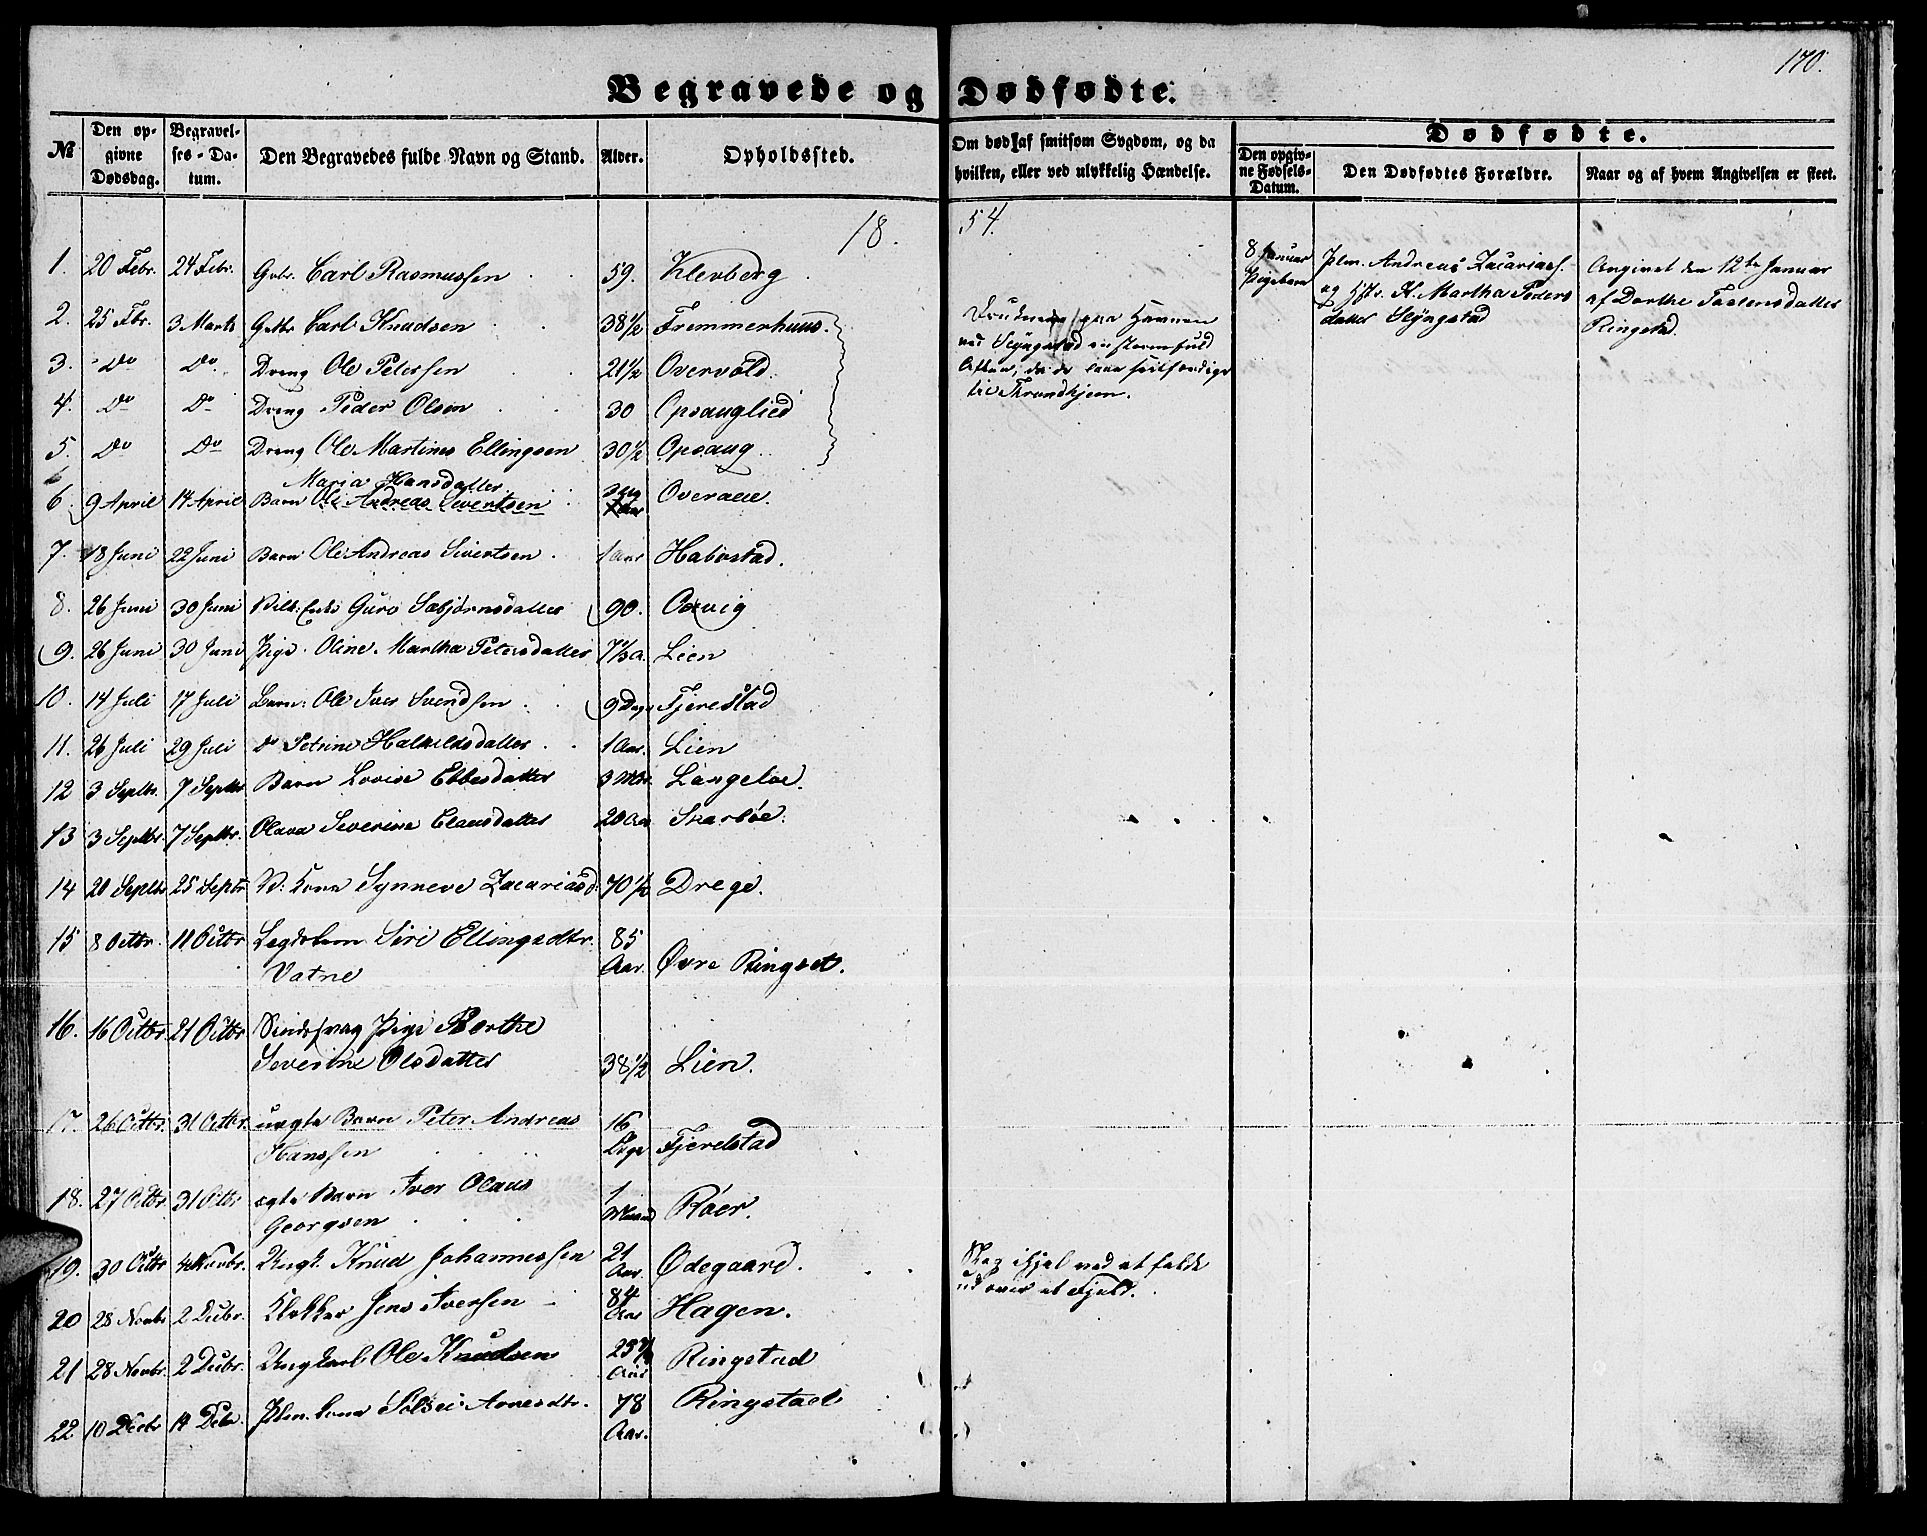 170.
Begravede og Dødfødte.
№
Den opgivne Dødsdag.
Begravelses-Datum.
Den Begravedes fulde Navn og Stand.
Alder.
Opholdssted.
Om død af smitsom Sygdom, og da hvilken, eller ved ulykkelig Hændelse.
Dødfødte.
Den opgivne Fødsels-Datum.
Den Dødfødtes Forældre.
Naar og af hvem Angivelsen er skeet.
18. 54.
1. 20 Febr. 24 Febr. Gbr. Carl Rasmussen 59. Klevberg
8 Januar Pigebarn
Plm. Andreas Zacariass.
og Hst. K. Martha Peders
datter Slyngstad
Angivet den 12te Januar
af Dorthe
Ringstad.
2. 25 Fbr. 3 Marts Gbr Carl Knudsen 38 1/2 Fremmerhuus.
3. Do Do. Dreng Ole Petersen 21 1/2 Overvold.
4. Do Do Dreng Peder Olsen 30 Opsauglied
5. Do Do Dreng Ole Martines Ellingsen 30 1/2 Opsaug.
paa Havnen
ved Slyngstad en stormfuld
Aften, da de laae seilfærdige
til Throndhjem.
Maria Hansdatter
6. 9 April 14 April Barn Ole Andreas Sivertsen Overaae.
7. 18 Juni 22 Juni Barn Ole Andreas Sivertsen. 1 Aar Habostad.
8. 26 Juni 30 Juni Enke Guro Sæbjørnsdatter 90. Oxvig
9. 26 Juni 30 Juni Pige. Oline Martha Petersdatter 7 1/3 A. Lien
10. 14 Juli 17 Juli Barn: Ole Iver Svendsen 9 Dage Fjerestad
11. 26 Juli 29 Juli Do Petrine Halkildsdatter 1 Aar. Lien
12 3 Septbr. 7 Septbr Barn Lovise Ebbesdatter 3 Mdr. Langeloe.
13 3 Septbr. 7 Septbr. Olava Severine Clausdatter 20 Aar Skarbøe.
14 20 Septbr 25 Septbr Kone Synneve Zacariasd. 70 1/2 Drege.
15 8 Octbr. 11 Octbr Legdslem Siri Ellingsdtr. 85
Vatne Aar. Øvre Ringset.
16. 16 Octbr. 21 Octbr Sindssvag Pige Berthe
Severine Olsdatter 38 1/2 Lien.
17. 26 Octbr. 31 Octbr. uægte Barn Peter Andreas 16
Hanssen Dage Fjerelstad
18. 27 Octbr 31 Octbr ægte Barn Iver Olaus 1
Georgsen Maaned Røer.
19. 30 Octbr 4 Novbr. Ungk. Knud Johannessen 21 Aar. Ødegaard.
Slog ihjel ved at falde
ud over et Fjeld.
20 28 Novbr 2 Decbr. Klokker Jens Iversen 84 Aar Hagen.
21 28 Novbr. 2 Decbr. Ungkarl Ole Knudsen Aar Ringstad
22 10 Decbr 14 Decbr. Plm. Kone Solvei Arnesdtr. 78 Aar. Ringstad